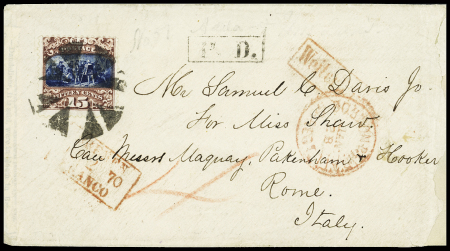 POSTAGE
15
P. D.
Mr Samuel C. Davis Jr.
For Miss Shaw.
Care Messrs Maquay, Pakenham & Hooker
Rome.
Italy.
70
FRANCO